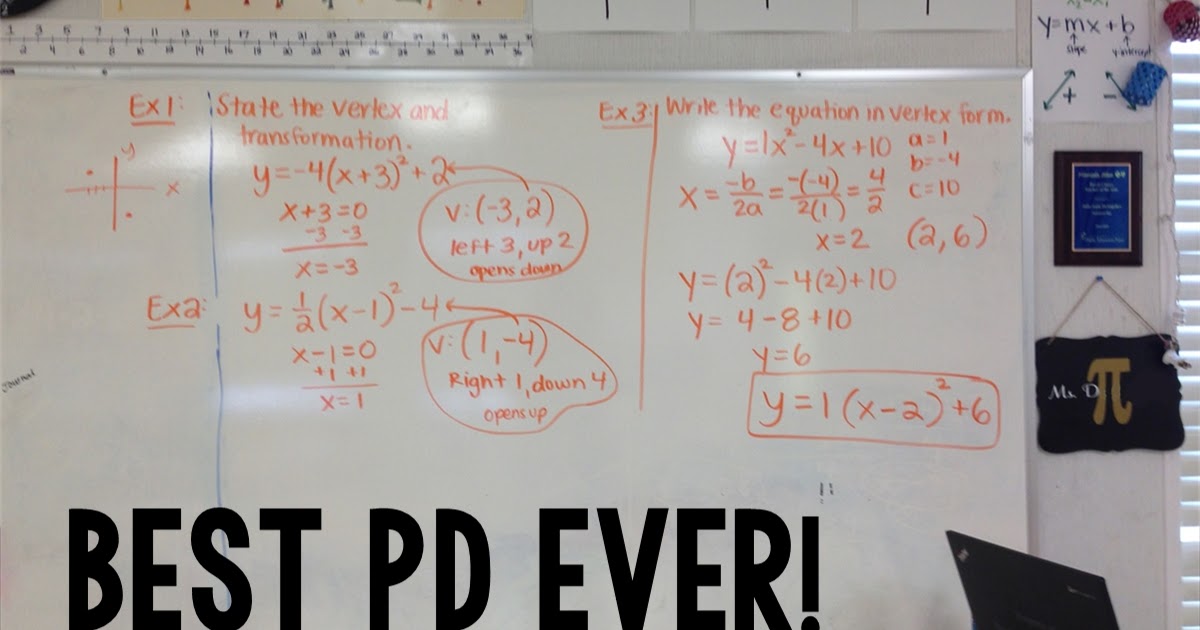 Ex1:
State the vertex and
transformation.
y
x
y=-4(x+3)²+2
x+3=0
-3 -3
x=-3
v:(-3,2)
left 3, up 2
opens down
Ex2:
y=½(x-1)²-4
x-1=0
+1 +1
x=1
v:(1,-4)
Right 1, down 4
opens up
Ex3:
Write the equation in vertex form.
y=1x²-4x+10
a=1
b=-4
c=10
x=-b/2a=-(-4)/2(1)=4/2
x=2 (2,6)
y=(2)²-4(2)+10
y=4-8+10
y=6
y=1(x-2)²+6
y=mx+b
slope
y-intercept
+ -
Journal
Ms. D
π
BEST PD EVER!